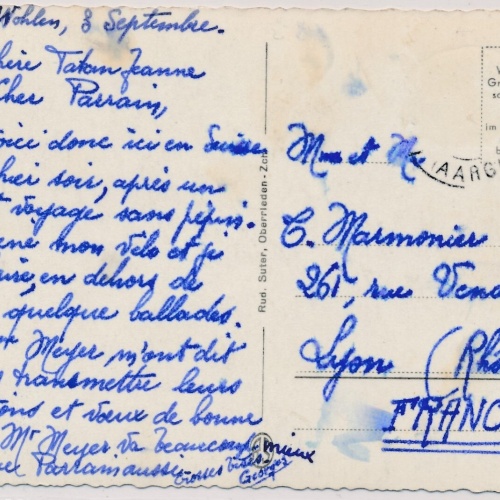 Wohlen, 3 Septembre.
hère Tatan Jeanne
Cher Parrain,
oici donc ici en Suisse
hier soir, après un
voyage sans pépin.
ené mon vélo et je
ire, en dehors de
quelque ballades.
Meyer, m'ont dit
transmettre leurs
ons et vœux de bonne
Mr Meyer va beaucoup mieux
Parramausse
Grosses bises
Georges
Rud. Suter, Oberrieden-Zch
(AARG
Mme et Mr
C. Marmonier
261, rue Vend
Lyon (Rhô
FRANC